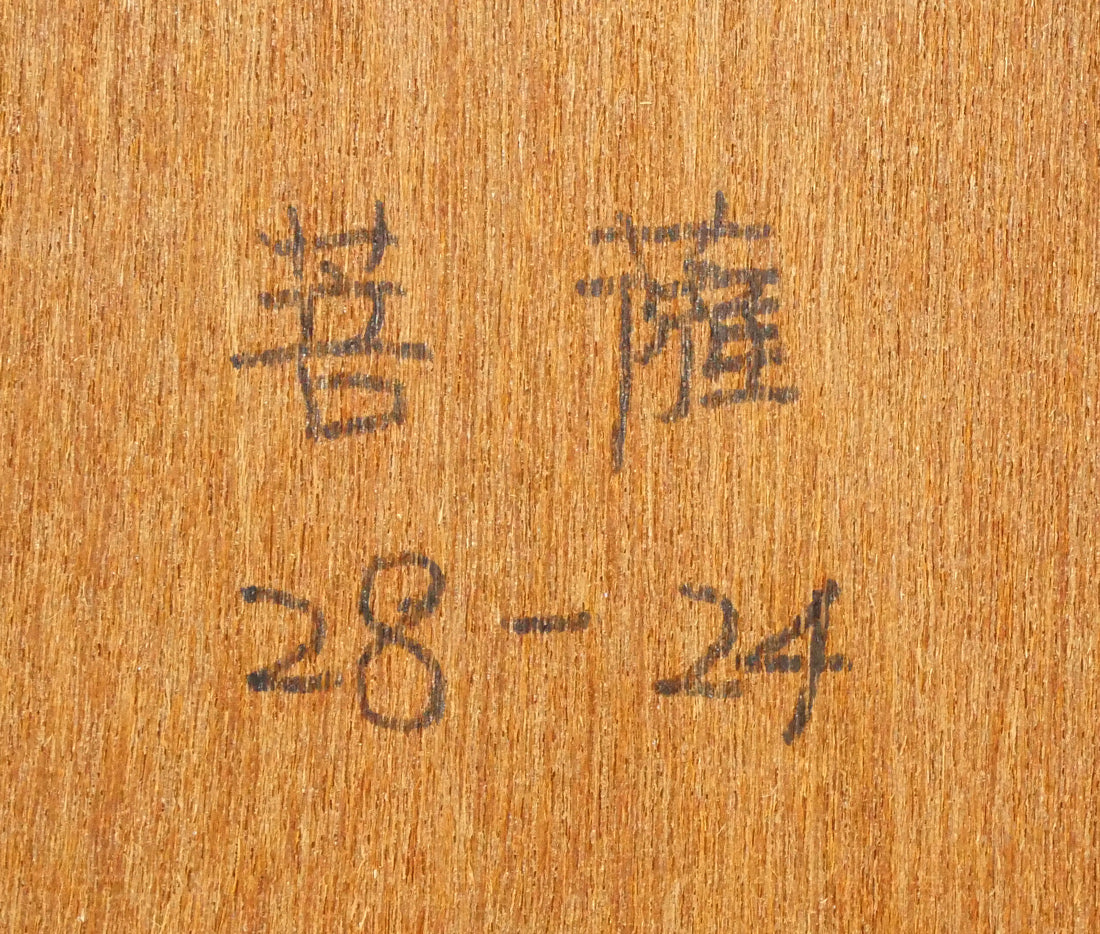 菩薩
28-24